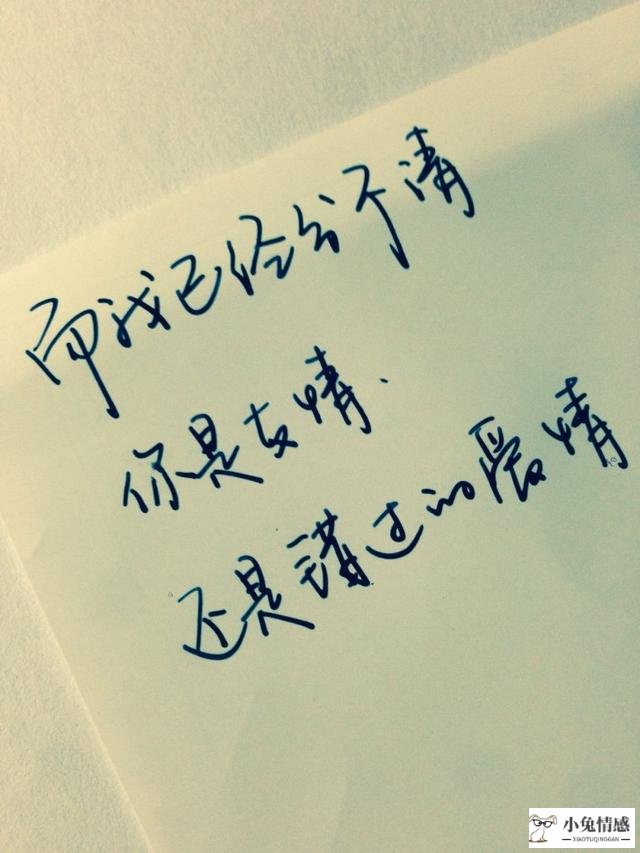 而我已经分不清
你是友情、
还是错过的爱情
小兔情感
XIAOTUQINGGAN